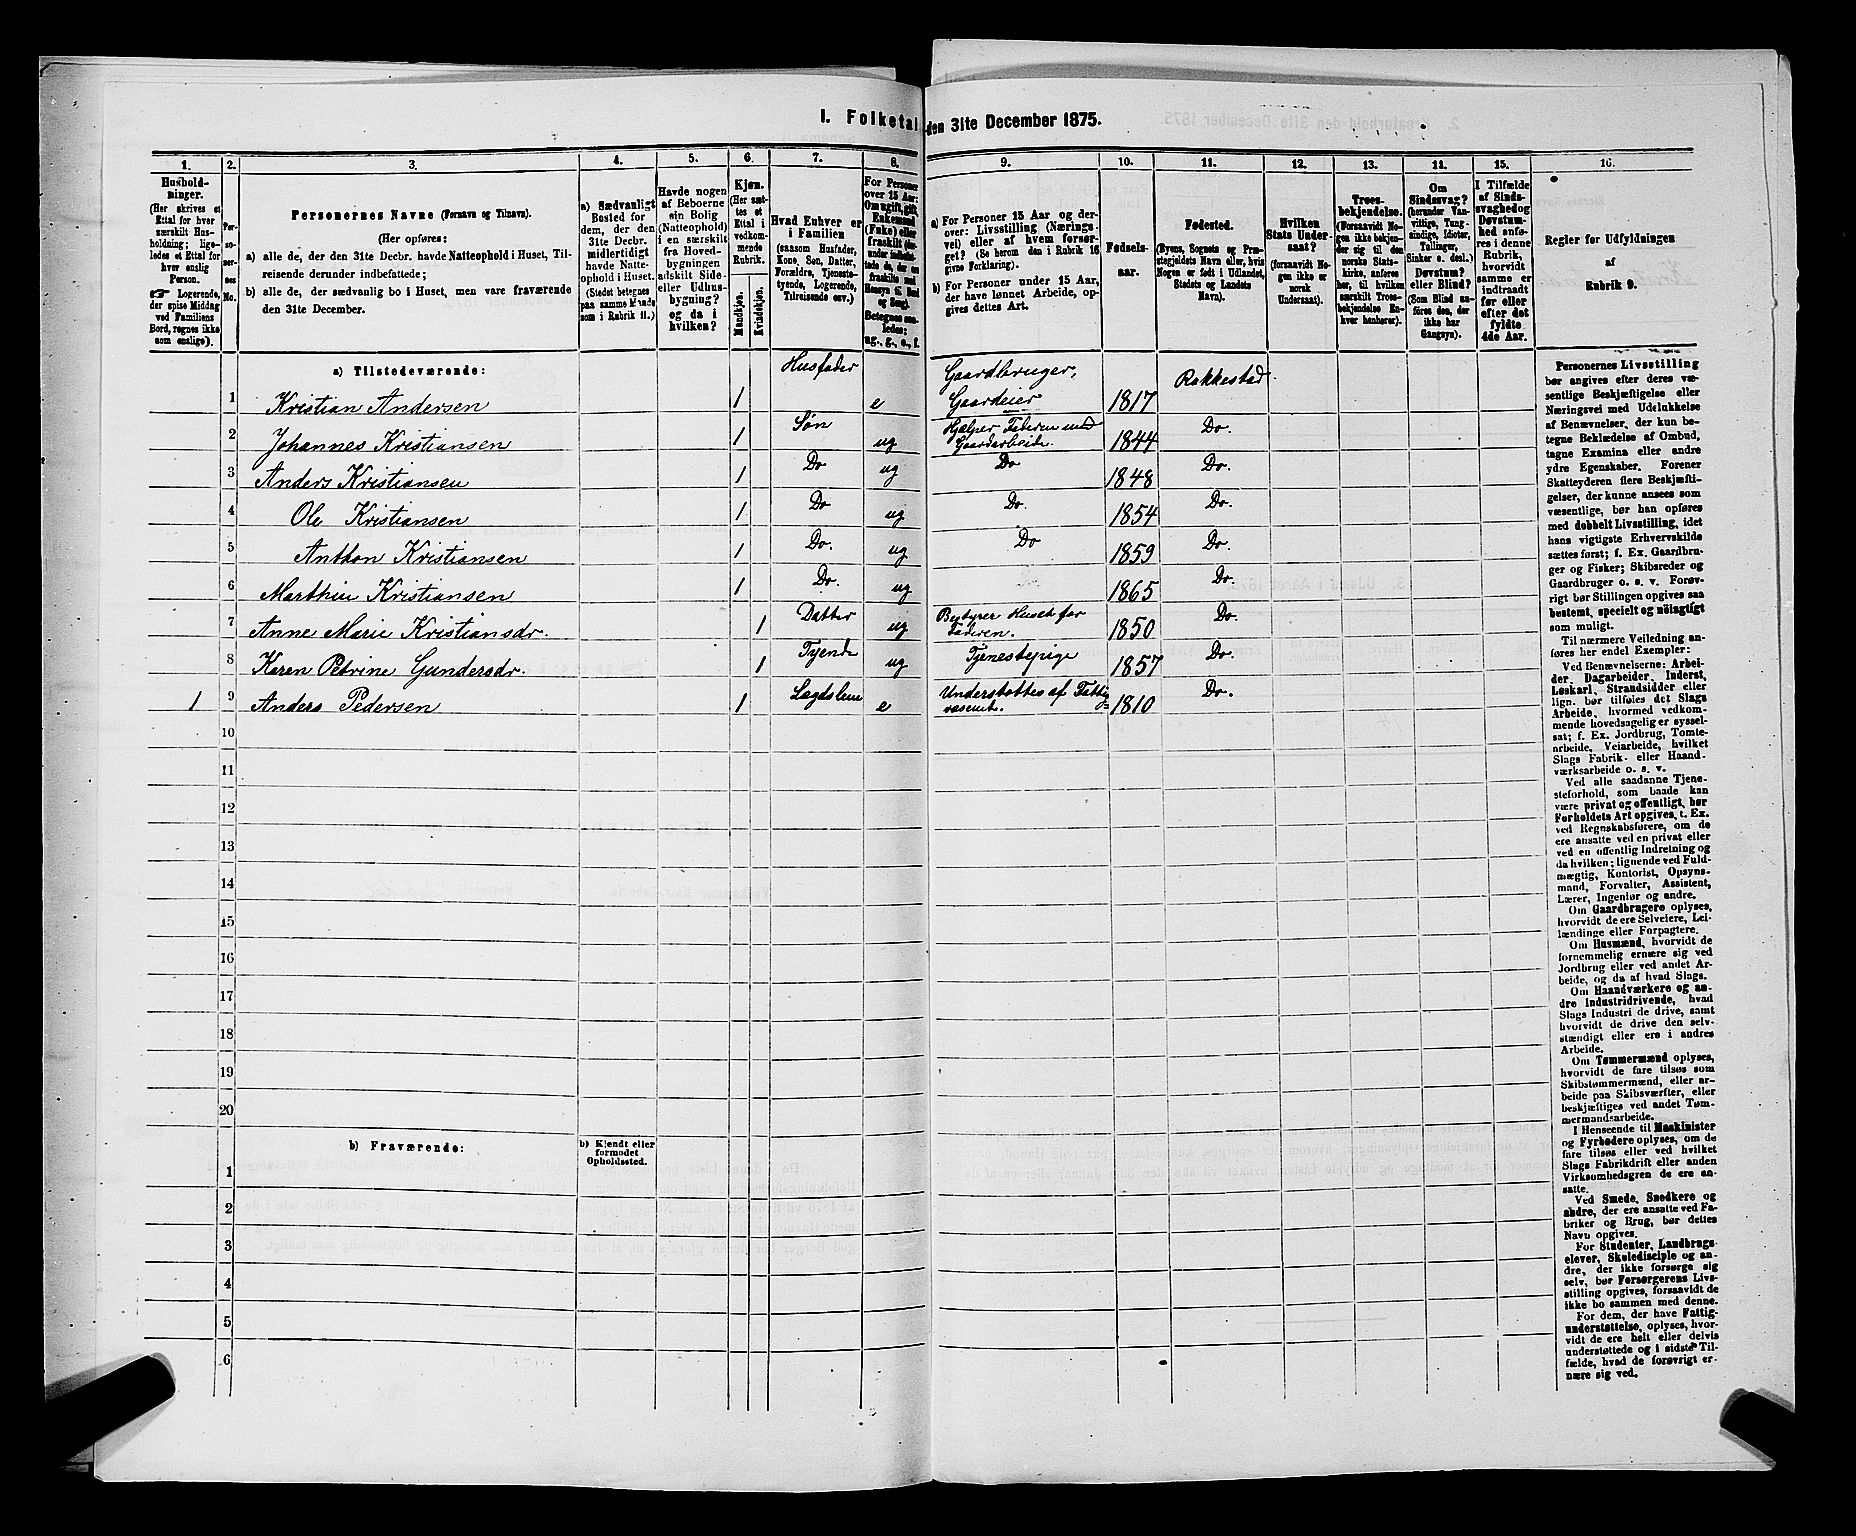 I. Folketal den 31te December 1875.
1. 2. 3. 4. 5. 6. 7. 8. 9. 10. 11. 12. 13. 14. 15. 16.
Husholdninger.
(Her skrives et Ettal for hver særskilt Husholdning; ligeledes et Ettal for hver enslig Person.
☞ Logerende, der spise Middag ved Familiens Bord, regnes ikke som enslige).
Personernes No.
Personernes Navne (Fornavn og Tilnavn).
(Her opføres:
a) alle de, der den 31te Decbr. havde Natteophold i Huset, Tilreisende derunder indbefattede;
b) alle de, der sædvanlig bo i Huset, men vare fraværende den 31te December.
a) Sædvanligt Bosted for dem, der den 31te Decbr. midlertidigt havde Natteophold i Huset.
(Stedet betegnes paa samme Maade som i Rubrik 11.)
Havde nogen af Beboerne sin Bolig (Natteophold) i en særskilt fra Hovedbygningen adskilt Side- eller Udhusbygning? og da i hvilken?
Kjøn.
(Her sættes et Ettal i vedkommende Rubrik.
Mandkjøn. Kvindekjøn.
Hvad Enhver er i Familien
(saasom Husfader, Kone, Søn, Datter, Forældre, Tjenestetyende, Logerende, Tilreisende osv.)
For Personer over 15 Aar: Om ugift, gift, Enkemand (Enke) eller fraskilt
Betegnes saaledes: ug., g., e., f.
a) For Personer 15 Aar og derover: Livsstilling (Næringsvei) eller af hvem forsørget? (Se herom den i Rubrik 16 givne Forklaring).
b) For Personer under 15 Aar, der have lønnet Arbeide, opgives dettes Art.
Fødselsaar.
Fødested.
(Byens, Sognets og Præstegjeldets Navn eller, hvis Nogen er født i Udlandet, Stedets og Landets Navn).
Hvilken Stats Undersaat?
(forsaavidt Nogen ikke er norsk Undersaat).
Troesbekjendelse.
(Forsaavidt Nogen ikke bekjender sig til den norske Statskirke, anføres her, til hvilken særskilt Troesbekjendelse Enhver henhører).
Om Sindssvag?
(herunder Vanvittige, Tungsindige, Idioter, Tullinger, Sinker o. desl.)
Døvstum? eller Blind?
(Som Blind anføres den, der ikke har Gangsyn).
I Tilfælde af Sindssvaghed og Døvstumhed anføres i denne Rubrik, hvorvidt samme er indtraadt før eller efter det fyldte 4de Aar.
Regler for Udfyldningen
af
Rubrik 9.
a) Tilstedeværende:
1 Kristian Andersen 1 Husfader e Gaardbruger, Gaardeier 1817 Rakkestad
2 Johannes Kristiansen 1 Søn ug Hjælper Faderen med Gaardarbeide. 1844 Do.
3 Anders Kristiansen 1 Do ug Do 1848 Do.
4 Ole Kristiansen 1 Do ug Do. 1854 Do.
5 Anthon Kristiansen 1 Do. ug Do 1859 Do.
6 Marthin Kristiansen 1 Do. ug 1865 Do.
7 Anne Marie Kristiansdr. 1 Datter ug Bestyrer Huset for Faderen. 1850 Do.
8 Karen Petrine Gundersdr. 1 Tyende ug Tjenestepige 1857 Do.
1 9 Anders Pedersen 1 Lægdslem e Understøttes af Fattigvæsenet. 1810 Do.
10
11
12
13
14
15
16
17
18
19
20
b) Fraværende:
b) Kjendt eller formodet Opholdssted.
1
2
3
4
5
6
Personernes Livsstilling
bør angives efter deres væ-
sentlige Beskjæftigelse eller
Næringsvei med Udelukkelse
af Benævnelser, der kun be-
tegne Beklædelse af Ombud,
tagne Examina eller andre
ydre Egenskaber. Forener
Skatteyderen flere Beskjæfti-
gelser, der kunne ansees som
væsentlige, bør han opføres
med dobbelt Livsstilling, idet
hans vigtigste Erhvervskilde
sættes først; f. Ex. Gaardbru-
ger og Fisker; Skibsreder og
Gaardbruger o. s. v. Forøv-
rigt bør Stillingen opgives saa
bestemt, specielt og nøiagtigt
som muligt.
Til nærmere Veiledning an-
føres her endel Exempler:
Ved Benævnelserne: Arbei-
der, Dagarbeider, Inderst,
Løskarl, Strandsidder eller
lign. bør tilføies det Slags
Arbeide, hvormed vedkom-
mende hovedsagelig er syssel-
sat; f. Ex. Jordbrug, Tomte-
arbeide, Veiarbeide, hvilket
Slags Fabrik- eller Haand-
værksarbeide o. s. v.
Ved alle saadanne Tjene-
steforhold, som baade kan
være privat og offentligt, bør
Forholdets Art opgives, t. Ex.
ved Regnskabsførere, om de
ere ansatte ved en privat eller
ved en offentlig Indretning og
da hvilken; lignende ved Fuld-
mægtig, Kontorist, Opsyns-
mand, Forvalter, Assistent,
Lærer, Ingeniør og andre.
Om Gaardbrugere oplyses,
hvorvidt de ere Selveiere, Lei-
lændinge eller Forpagtere.
Om Husmænd, hvorvidt de
fornemmelig ernære sig ved
Jordbrug eller ved andet Ar-
beide, og da af hvad Slags.
Om Haandværkere og an-
dre Industridrivende, hvad
Slags Industri de drive, samt
hvorvidt de drive den selv-
stændigt eller ere i andres
Arbeide.
Om Tømmermænd oplyses,
hvorvidt de fare tilsøs som
Skibstømmermænd, eller ar-
beide paa Skibsværfter, eller
beskjæftiges ved andet Tøm-
mermandsarbeide.
I Henseende til Maskinister
og Fyrbødere oplyses, om de
fare tilsøs eller ved hvilket
Slags Fabrikdrift eller anden
Virksomhedsgren de ere an-
satte.
Ved Smede, Snedkere og
andre, der ere ansatte ved Fa-
briker og Brug, bør dettes
Navn opgives.
For Studenter, Landbrugs-
elever, Skoledisciple og an-
dre, der ikke forsørge sig
selv, bør Forsørgerens Livs-
stilling opgives, forsaavidt de
ikke bo sammen med denne.
For dem, der have Fattig-
understøttelse, oplyses, hvor-
vidt de ere helt eller delvis
understøttede og i sidste Til-
fælde, hvad de forøvrigt er-
nære sig ved.